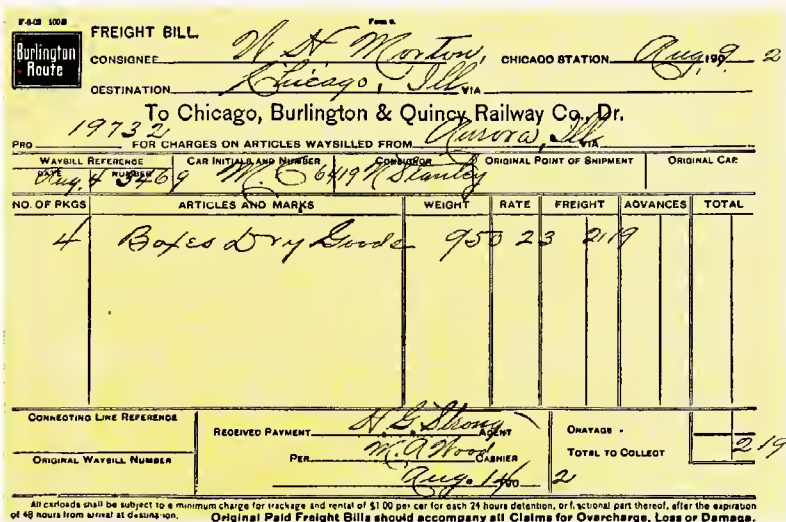 F-5-03 100M Form 6.
Burlington Route
FREIGHT BILL.
CONSIGNEE W H Morton, CHICAGO STATION Aug. 9 190 2
DESTINATION Chicago, Ill VIA
To Chicago, Burlington & Quincy Railway Co., Dr.
PRO 19732 FOR CHARGES ON ARTICLES WAYBILLED FROM Aurora, Ill VIA
WAYBILL REFERENCE CAR INITIALS AND NUMBER CONSIGNOR ORIGINAL POINT OF SHIPMENT ORIGINAL CAR
DATE NUMBER
Aug. 4 3469 M C 6419 N Stanley
NO. OF PKGS ARTICLES AND MARKS WEIGHT RATE FREIGHT ADVANCES TOTAL
4 Boxes Dry Goods 950 23 2 19
CONNECTING LINE REFERENCE
RECEIVED PAYMENT H. G. Strong AGENT DRAYAGE -
PER M. A Wood CASHIER TOTAL TO COLLECT 2 19
ORIGINAL WAYBILL NUMBER
Aug. 14 190 2
All carloads shall be subject to a minimum charge for trackage and rental of $1.00 per car for each 24 hours detention, or fractional part thereof, after the expiration
of 48 hours from arrival at destination. Original Paid Freight Bills should accompany all Claims for Overcharge, Loss or Damage.